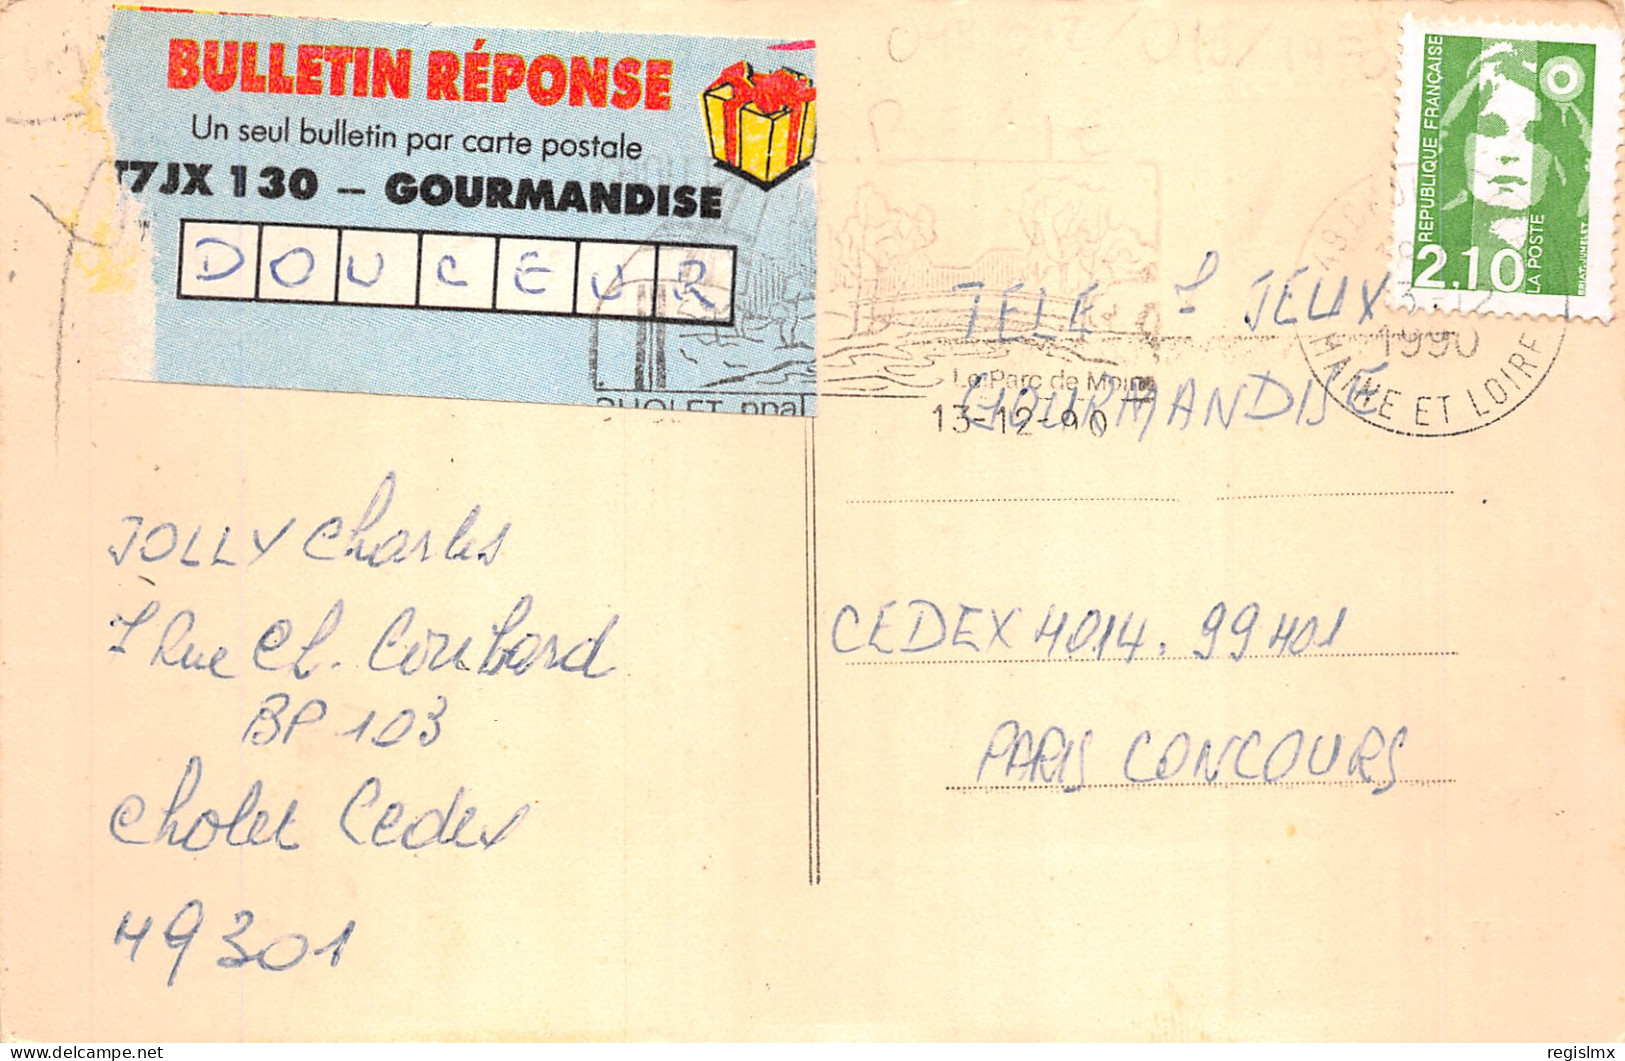 BULLETIN RÉPONSE
Un seul bulletin par carte postale
T7JX 130 – GOURMANDISE
DOUCEUR
RÉPUBLIQUE FRANÇAISE
2,10
LA POSTE
BRIAT-JUMELET
1990
MAINE ET LOIRE
Le Parc de Moine
13-12-90
CHOLET ppal
TELE 7 JEUX
GOURMANDISE
CEDEX 4014. 99401
PARIS CONCOURS
JOLLY Charles
7 Rue Ch. Coubard
BP 103
Cholet Cedex
49301
delcampe.net
regislmx